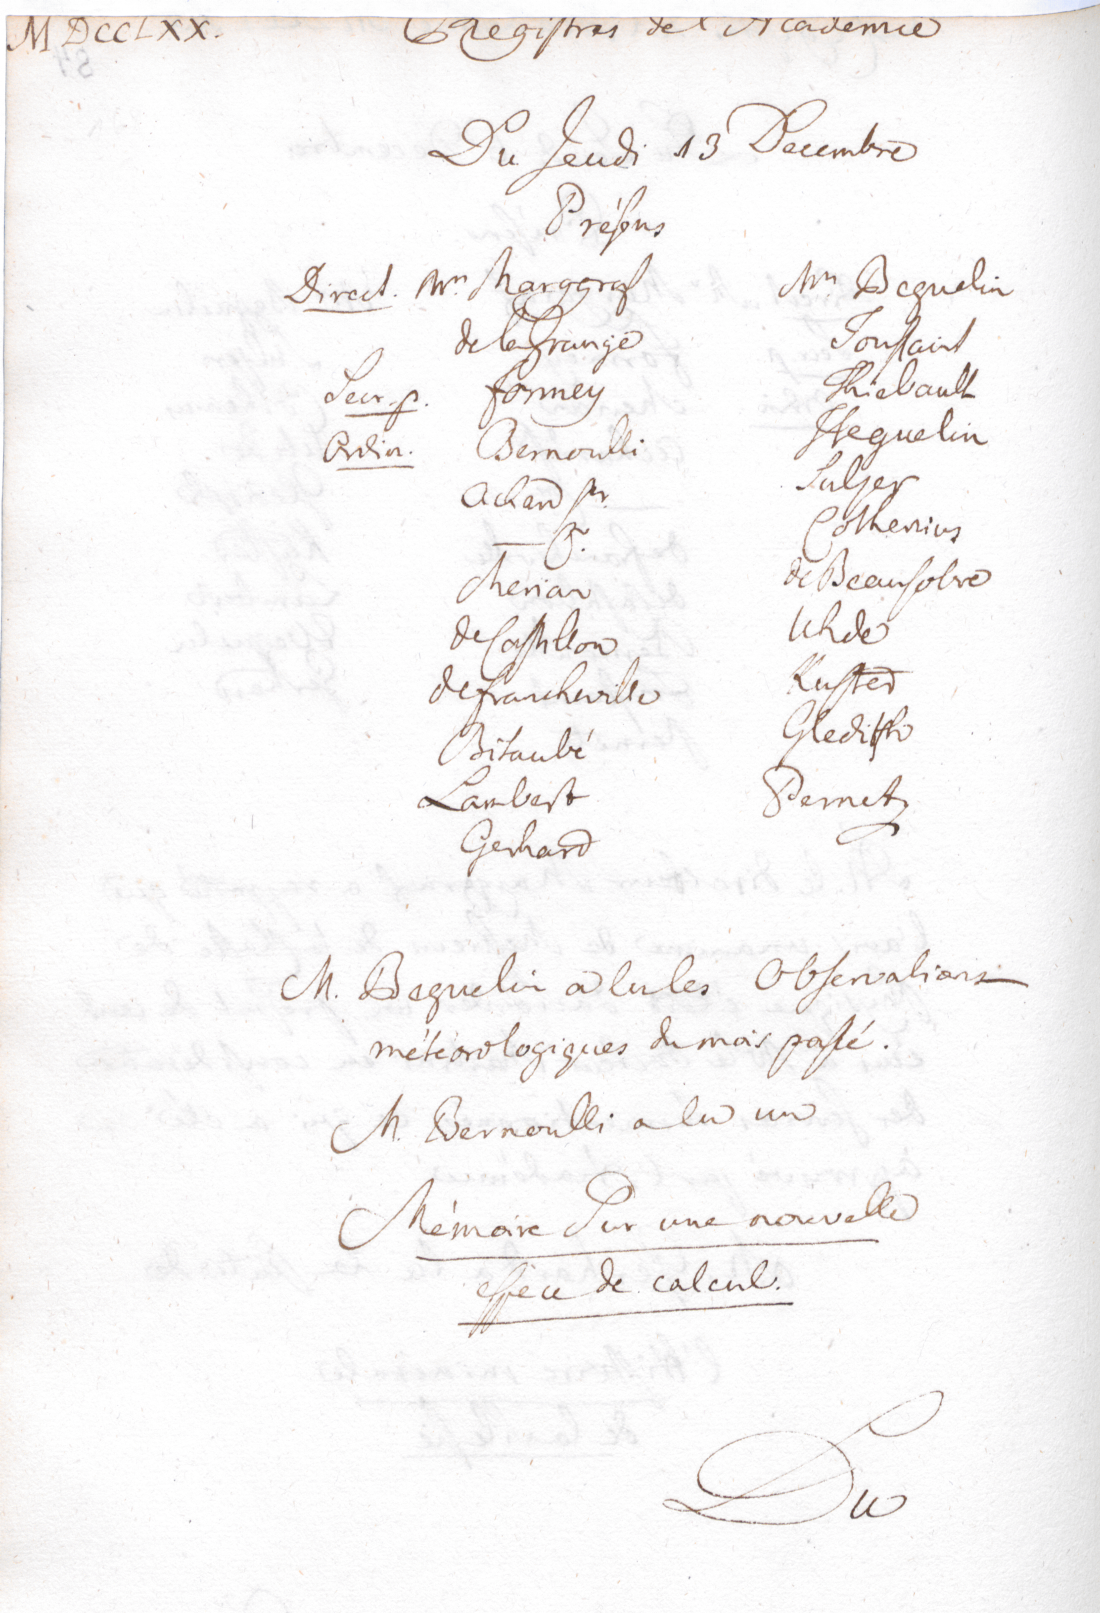 MDCCLXX.
Registres de l'Academie
Du Jeudi 13 Decembre
Présens
Direct. Mrs. Marggraf
de la Grange
Secr. p. Formey
Ordin. Bernoulli
Achard Sr.
— Jr.
Merian
de Castillon
de Francheville
Bitaubé
Lambert
Gerhard
Mrs. Beguelin
Toussaint
Thiebault
Weguelin
Sulzer
Cothenius
de Beausobre
Uhde
Kuster
Gleditsch
Pernety
M. Beguelin a lu les Observations
météorologiques du mois passé.
M. Bernoulli a lu un
Mémoire sur une nouvelle
espece de calcul.
Du